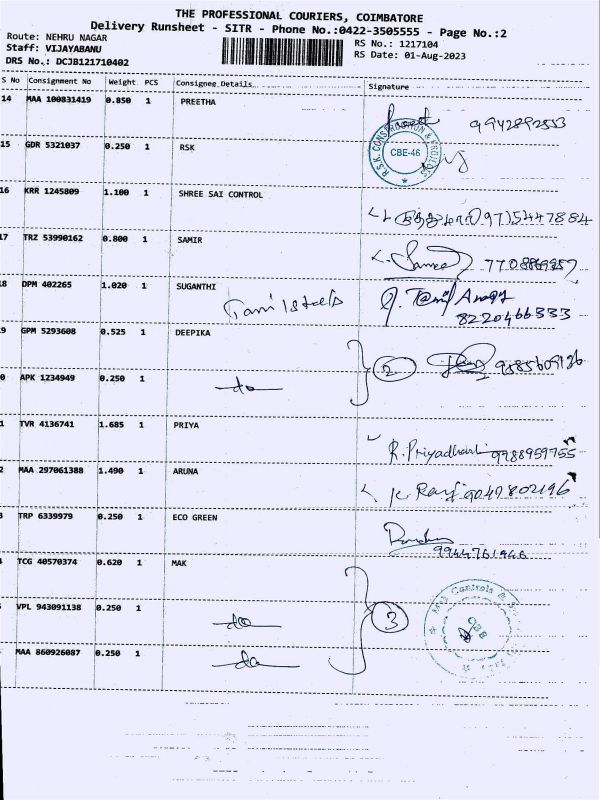 THE PROFESSIONAL COURIERS, COIMBATORE
Delivery Runsheet - SITR - Phone No.:0422-3505555 - Page No.:2
Route: NEHRU NAGAR
RS No.: 1217104
Staff: VIJAYABANU
RS Date: 01-Aug-2023
DRS No.: DCJB121710402
S No Consignment No Weight PCS Consignee Details Signature
14 MAA 100831419 0.850 1 PREETHA
15 GDR 5321037 0.250 1 RSK
R.S.K. CONSTRUCTION & PROJECTS CBE-46
16 KRR 1245809 1.100 1 SHREE SAI CONTROL
9715447884
17 TRZ 53990162 0.800 1 SAMIR
8 DPM 402265 1.020 1 SUGANTHI
8220466333
9 GPM 5293608 0.525 1 DEEPIKA
2
0 APK 1234949 0.250 1 do
1 TVR 4136741 1.685 1 PRIYA
R. Priyadharshini 9988959755
2 MAA 297061388 1.490 1 ARUNA
K. Raj 9047802196
TRP 6339979 0.250 1 ECO GREEN
TCG 40570374 0.620 1 MAK
VPL 943091138 0.250 1 do
3
MAA 860926087 0.250 1 do